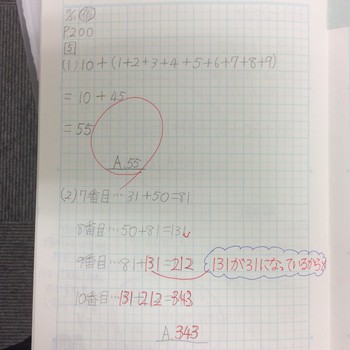 P200
[5]
(1) 10+(1+2+3+4+5+6+7+8+9)
=10+45
=55
A.55
(2) 7番目…31+50=81
8番目…50+81=131
9番目…81+131=212 131が31になっているから。
10番目…131+212=343
A.343